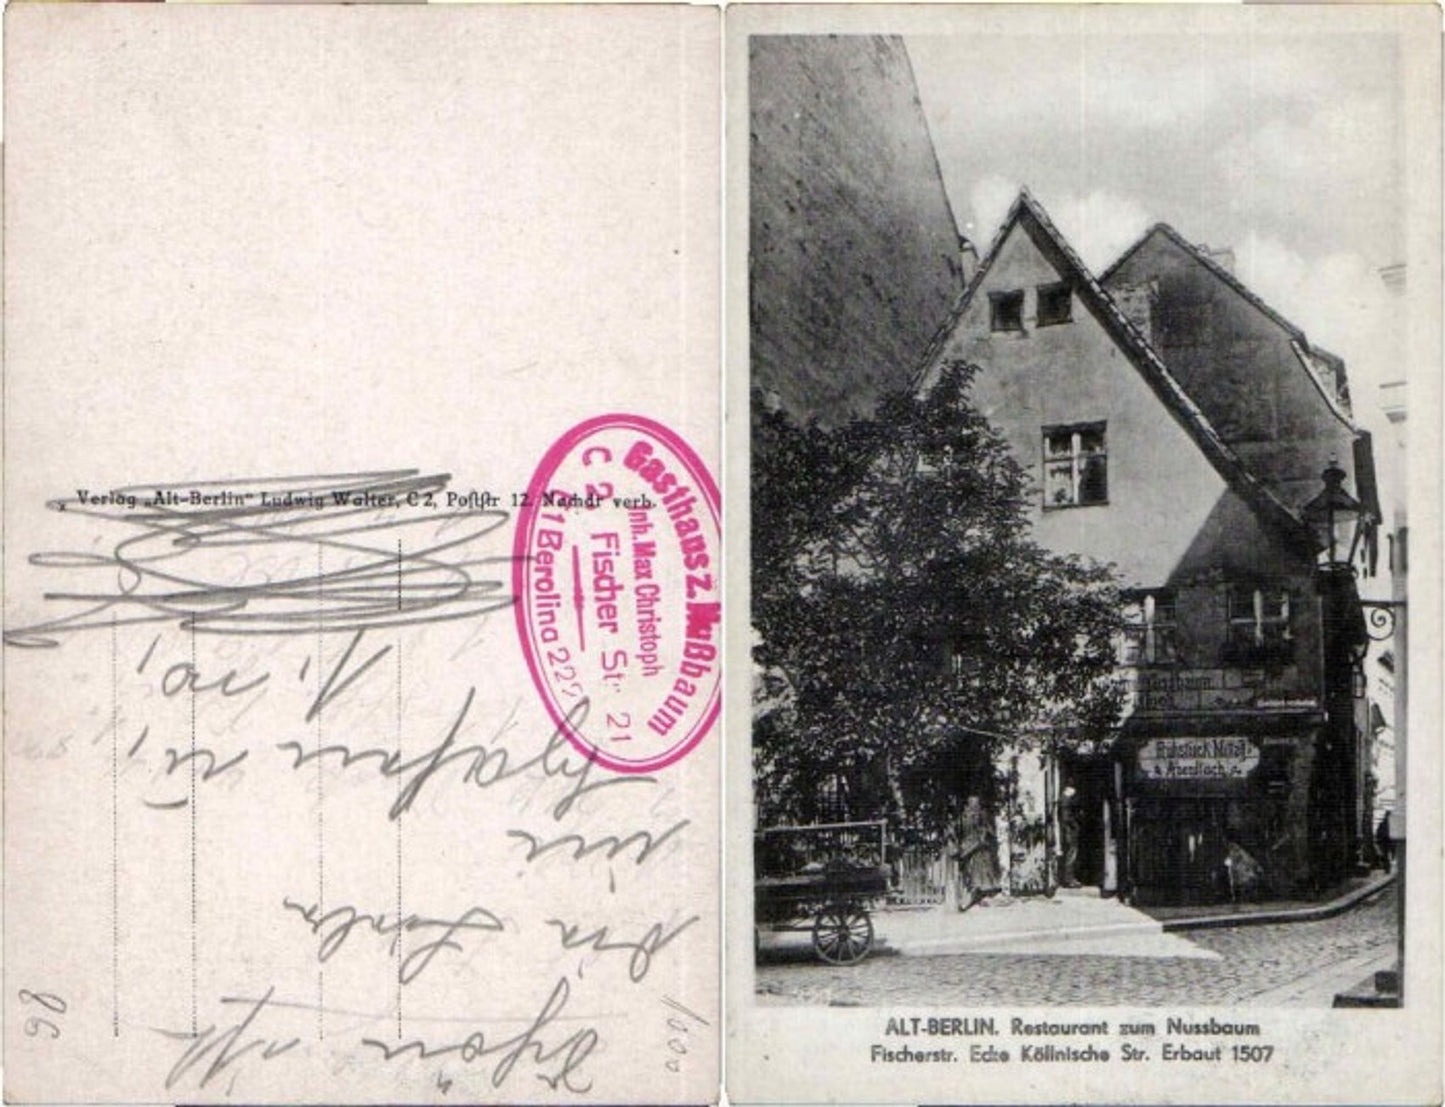 Verlag „Alt-Berlin“ Ludwig Walter, C 2, Poststr 12. Nachdr verb.
Gasthaus z. Nußbaum
Inh. Max Christoph
C 2, Fischer Str. 21
1 Berolina
Schön ist
die Liebe
im
Hafen
1000
86
Nussbaum
Frühstück Mittag-
& Abendtisch
ALT-BERLIN. Restaurant zum Nussbaum
Fischerstr. Ecke Köllnische Str. Erbaut 1507